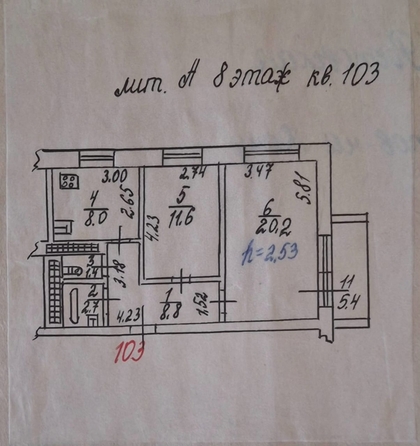 лит. А 8 этаж кв. 103
3.00
2.74
3.47
4
8.0
2.65
5
11.6
4.23
6
20.2
5.81
h=2,53
3
1.4
3.18
2
2.7
1
8.8
1.52
4.23
11
5.4
103